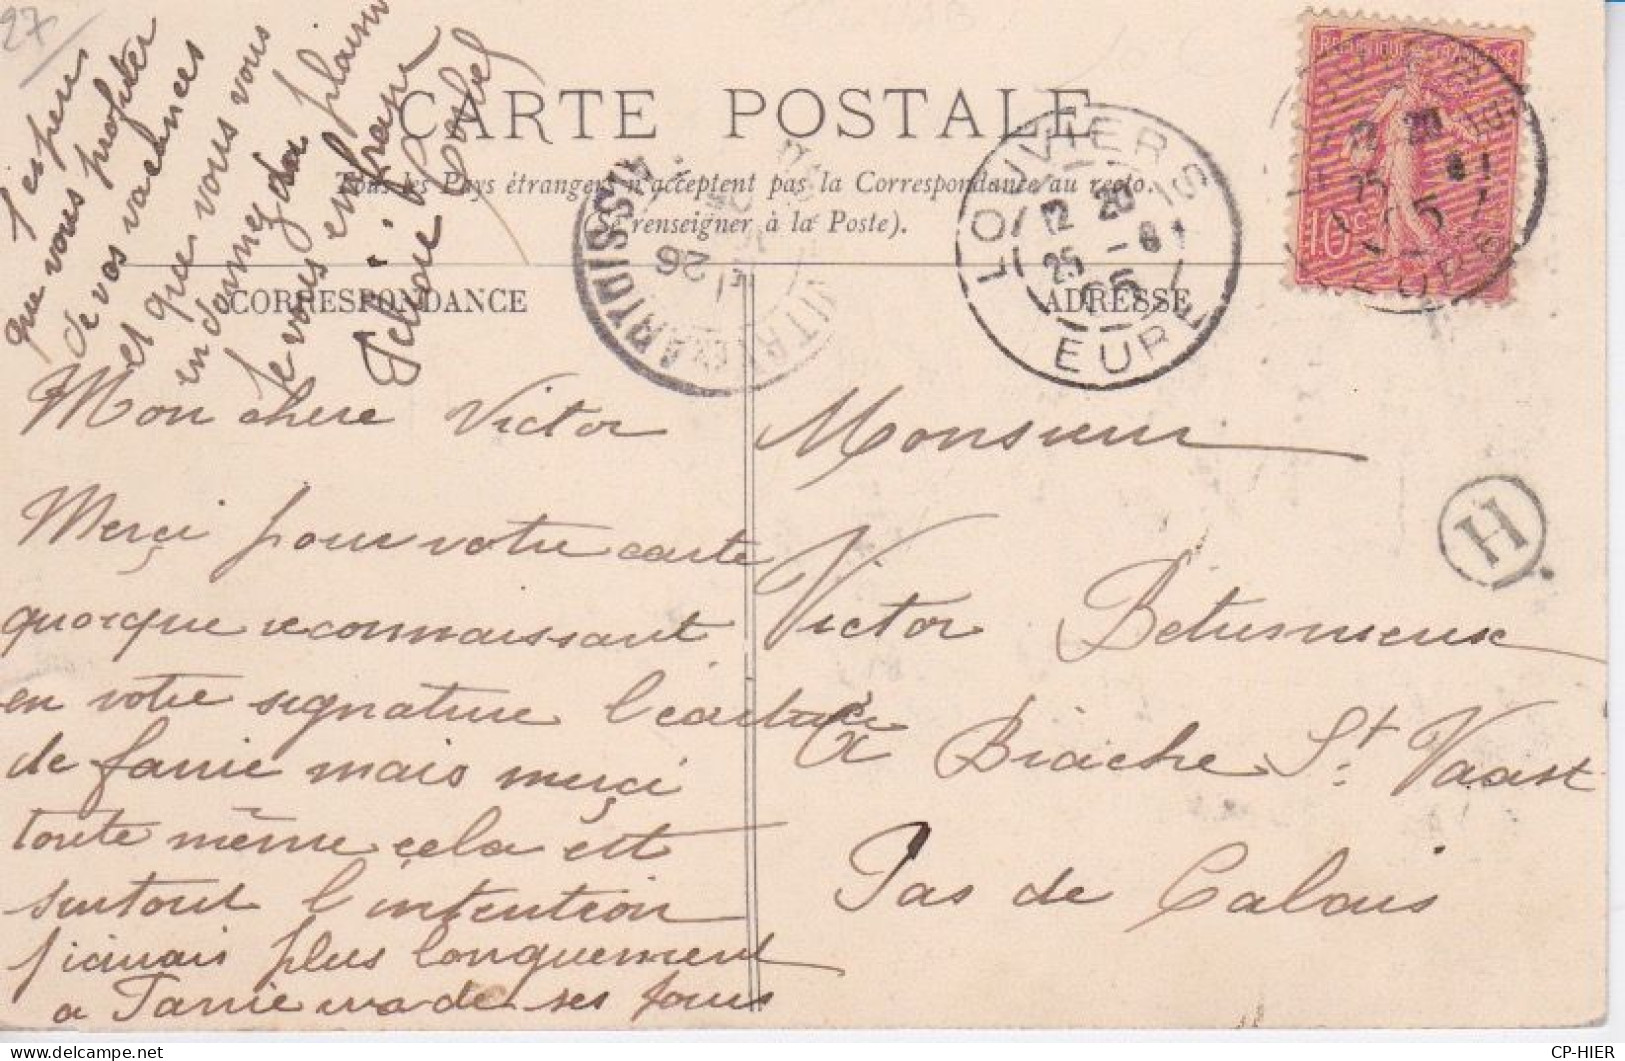 27
CARTE POSTALE
Tous les Pays étrangers n'acceptent pas la Correspondance au recto.
(Se renseigner à la Poste).
CORRESPONDANCE
ADRESSE
REPUBLIQUE FRANÇAISE
10c
LOUVIERS
12 20
25 - 8
05
EURE
VITRY-EN-ARTOIS
26
H
Mon chere Victor
Merçi pour votre carte
quoique reconnaissant
en votre signature l'écriture
de fanie mais merçi
toute même cela est
surtout l'intention
j'
plus longuement
a Fanie de ses
J'espere
que vous profiter
de vos vacances
et que vous vous
en donnez du plaisir
Je vous embrasse
Monsieur
Victor Béhumieux
à Biache St. Vaast
Pas de Calais
CP-HIER